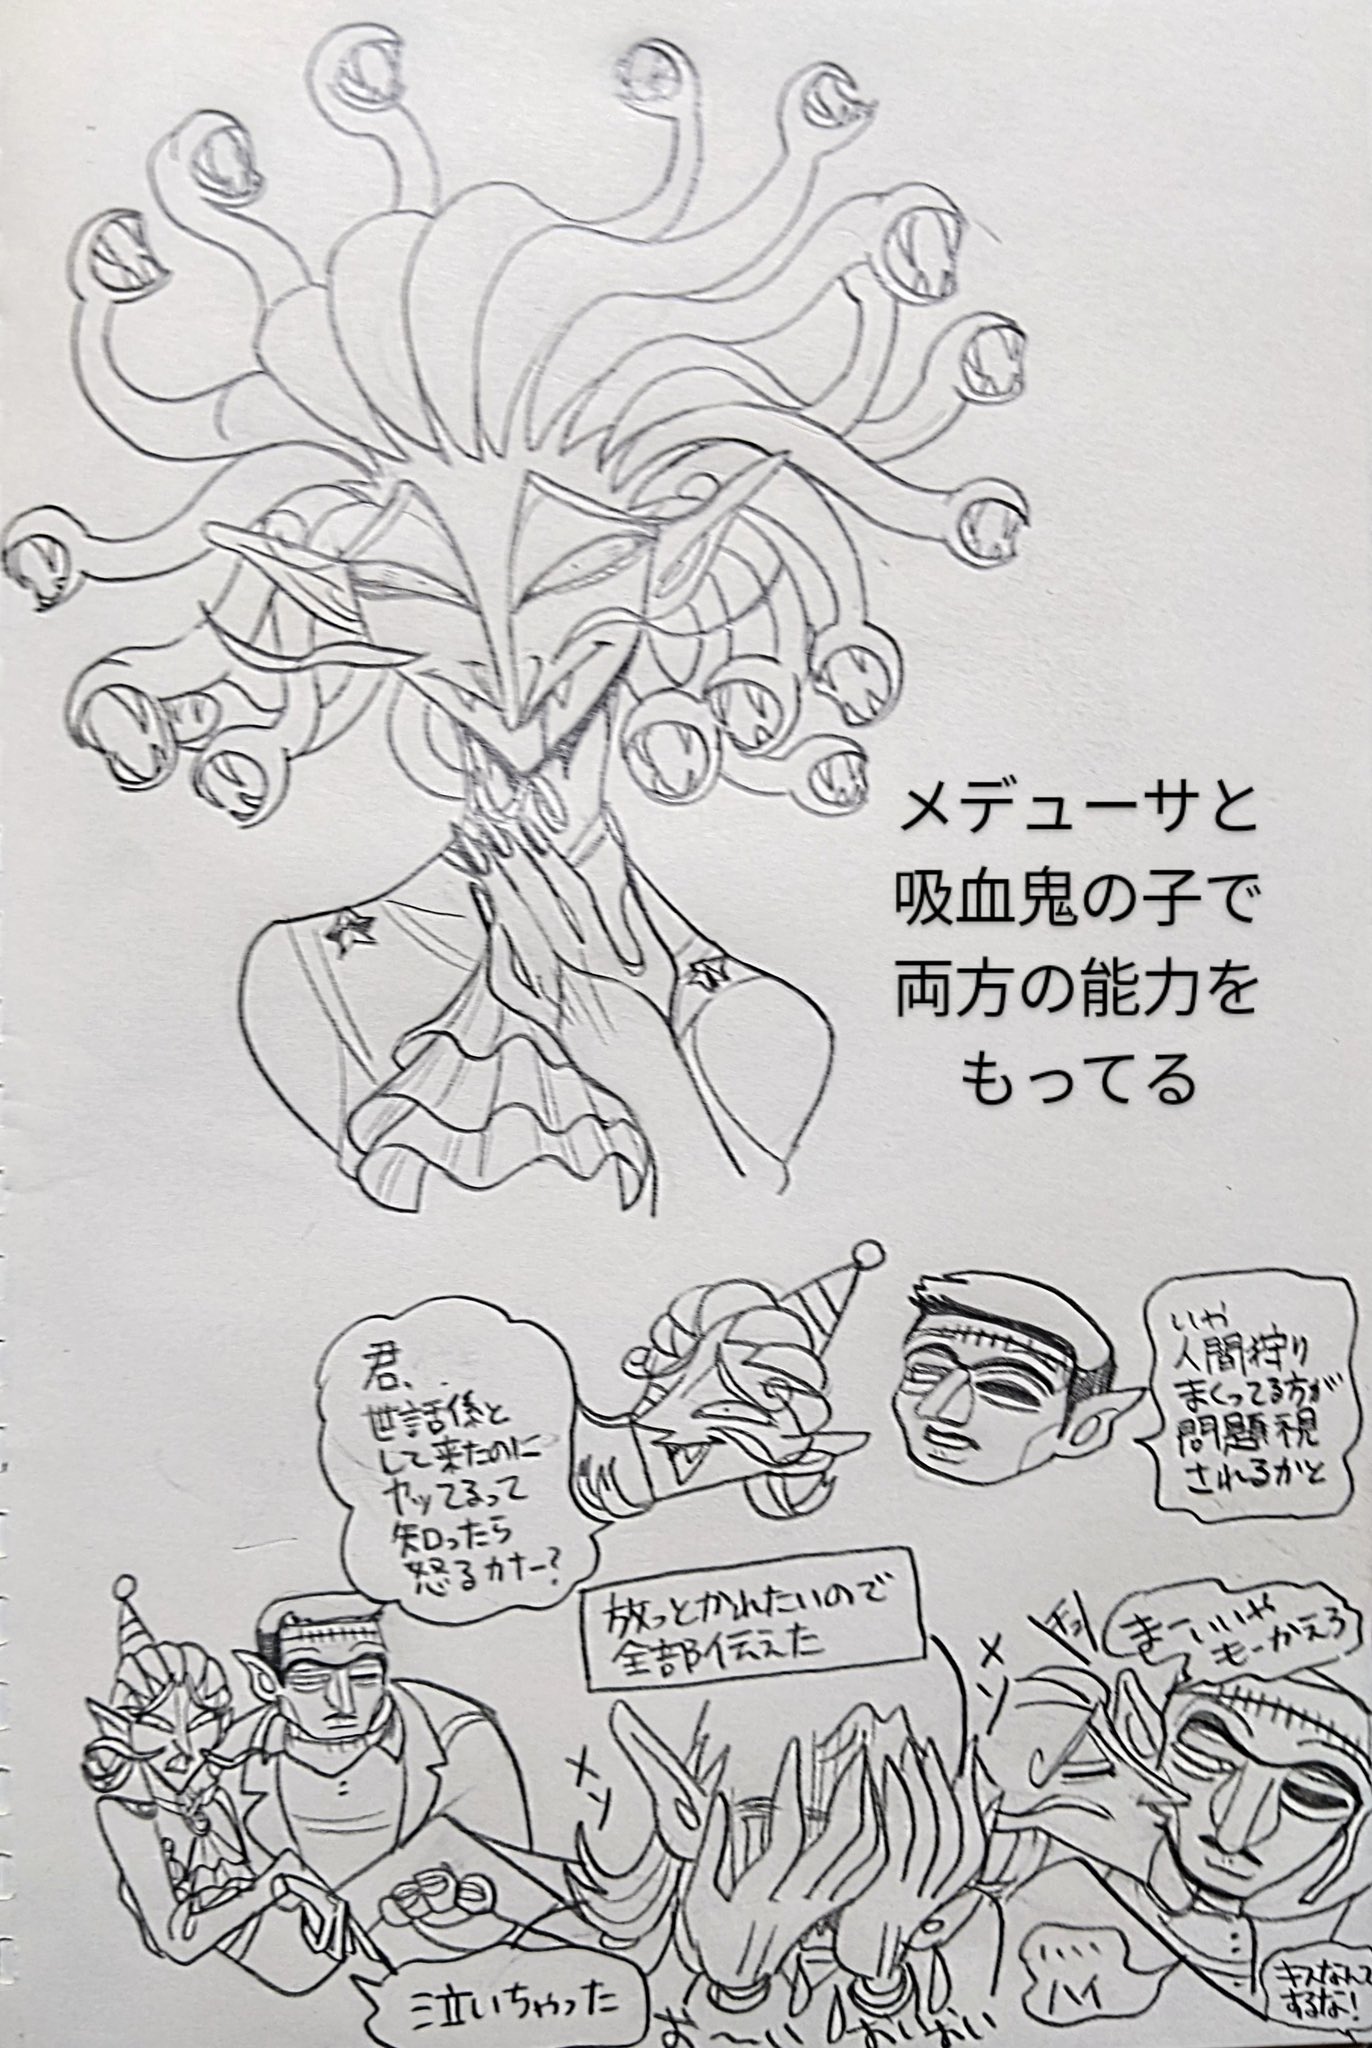 メデューサと
吸血鬼の子で
両方の能力を
もってる
君、..
世話係と
して来たのに
ヤッてるって
知ったら
怒るカナー?
いや
人間狩り
まくってる方が
問題視
されるかと
放っとかれたいので
全部伝えた
まーいいや
もーかえろ
メソ
メソ
泣いちゃった
おーい
おいおい
....
ハイ
キスなんて
するな!